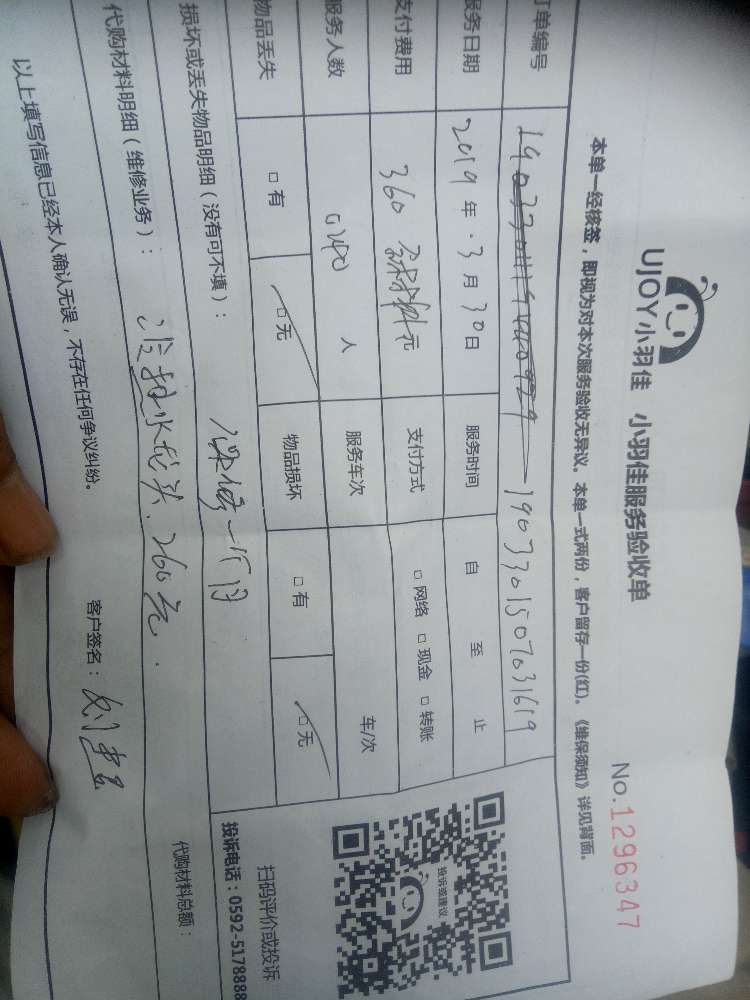 UJOY小羽佳 小羽佳服务验收单
No.1296347
本单一经核签，即视为对本次服务验收无异议。本单一式两份，客户留存一份(红)。《维保须知》详见背面。
订单编号 1903301507031619
服务日期 2019年.3月30日 服务时间 自 至 止
支付费用 360 含材料元 支付方式 □网络 □现金 □转账
服务人数 人 服务车次 车/次
物品丢失 □有 □无 物品损坏 □有 □无
损坏或丢失物品明细（没有可不填）： 保修一个月
代购材料明细（维修业务）： 水龙头、260元. 代购材料总额：
以上填写信息已经本人确认无误，不存在任何争议纠纷。 客户签名：
投诉或建议
扫码评价或投诉
投诉电话：0592-5178888